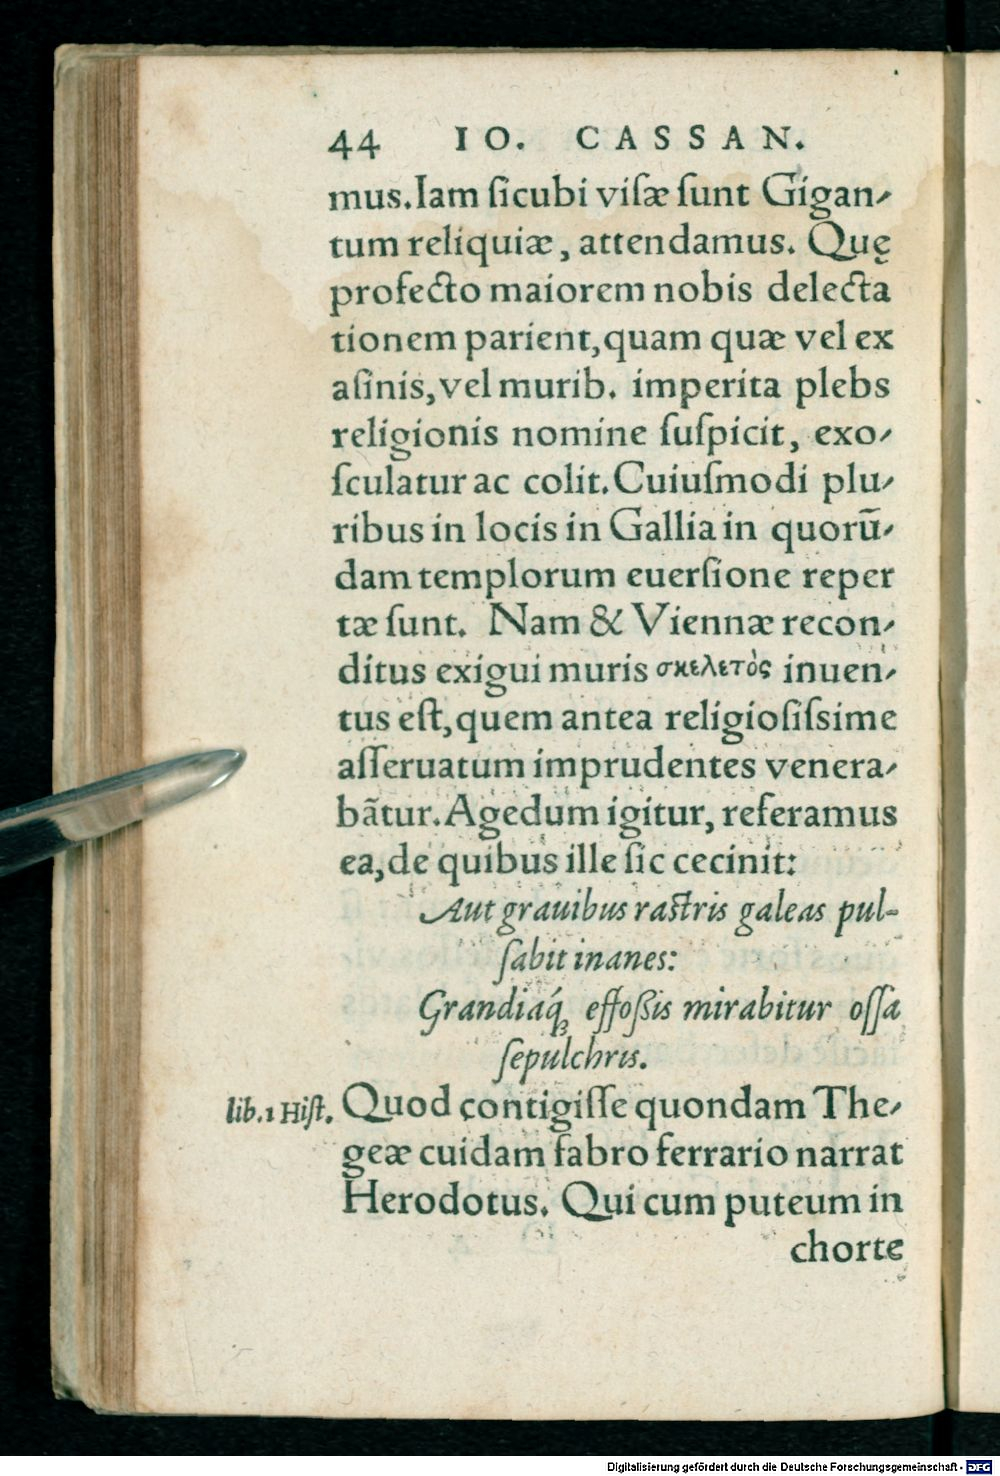 44 IO. CASSAN.
mus. Iam ſicubi viſæ ſunt Gigan-
tum reliquiæ, attendamus. Quę
profecto maiorem nobis delecta
tionem parient, quam quæ vel ex
aſinis, vel murib. imperita plebs
religionis nomine ſuſpicit, exo-
ſculatur ac colit. Cuiuſmodi plu-
ribus in locis in Gallia in quorū-
dam templorum euerſione reper
tæ ſunt. Nam & Viennæ recon-
ditus exigui muris σκελετὸς inuen-
tus eſt, quem antea religioſiſsime
aſſeruatum imprudentes venera-
bãtur. Agedum igitur, referamus
ea, de quibus ille ſic cecinit:
Aut grauibus raſtris galeas pul-
ſabit inanes:
Grandiaq́; effoſsis mirabitur oſſa
ſepulchris.
lib. 1 Hiſt. Quod contigiſſe quondam The-
geæ cuidam fabro ferrario narrat
Herodotus. Qui cum puteum in
chorte
Digitalisierung gefördert durch die Deutsche Forschungsgemeinschaft - DFG